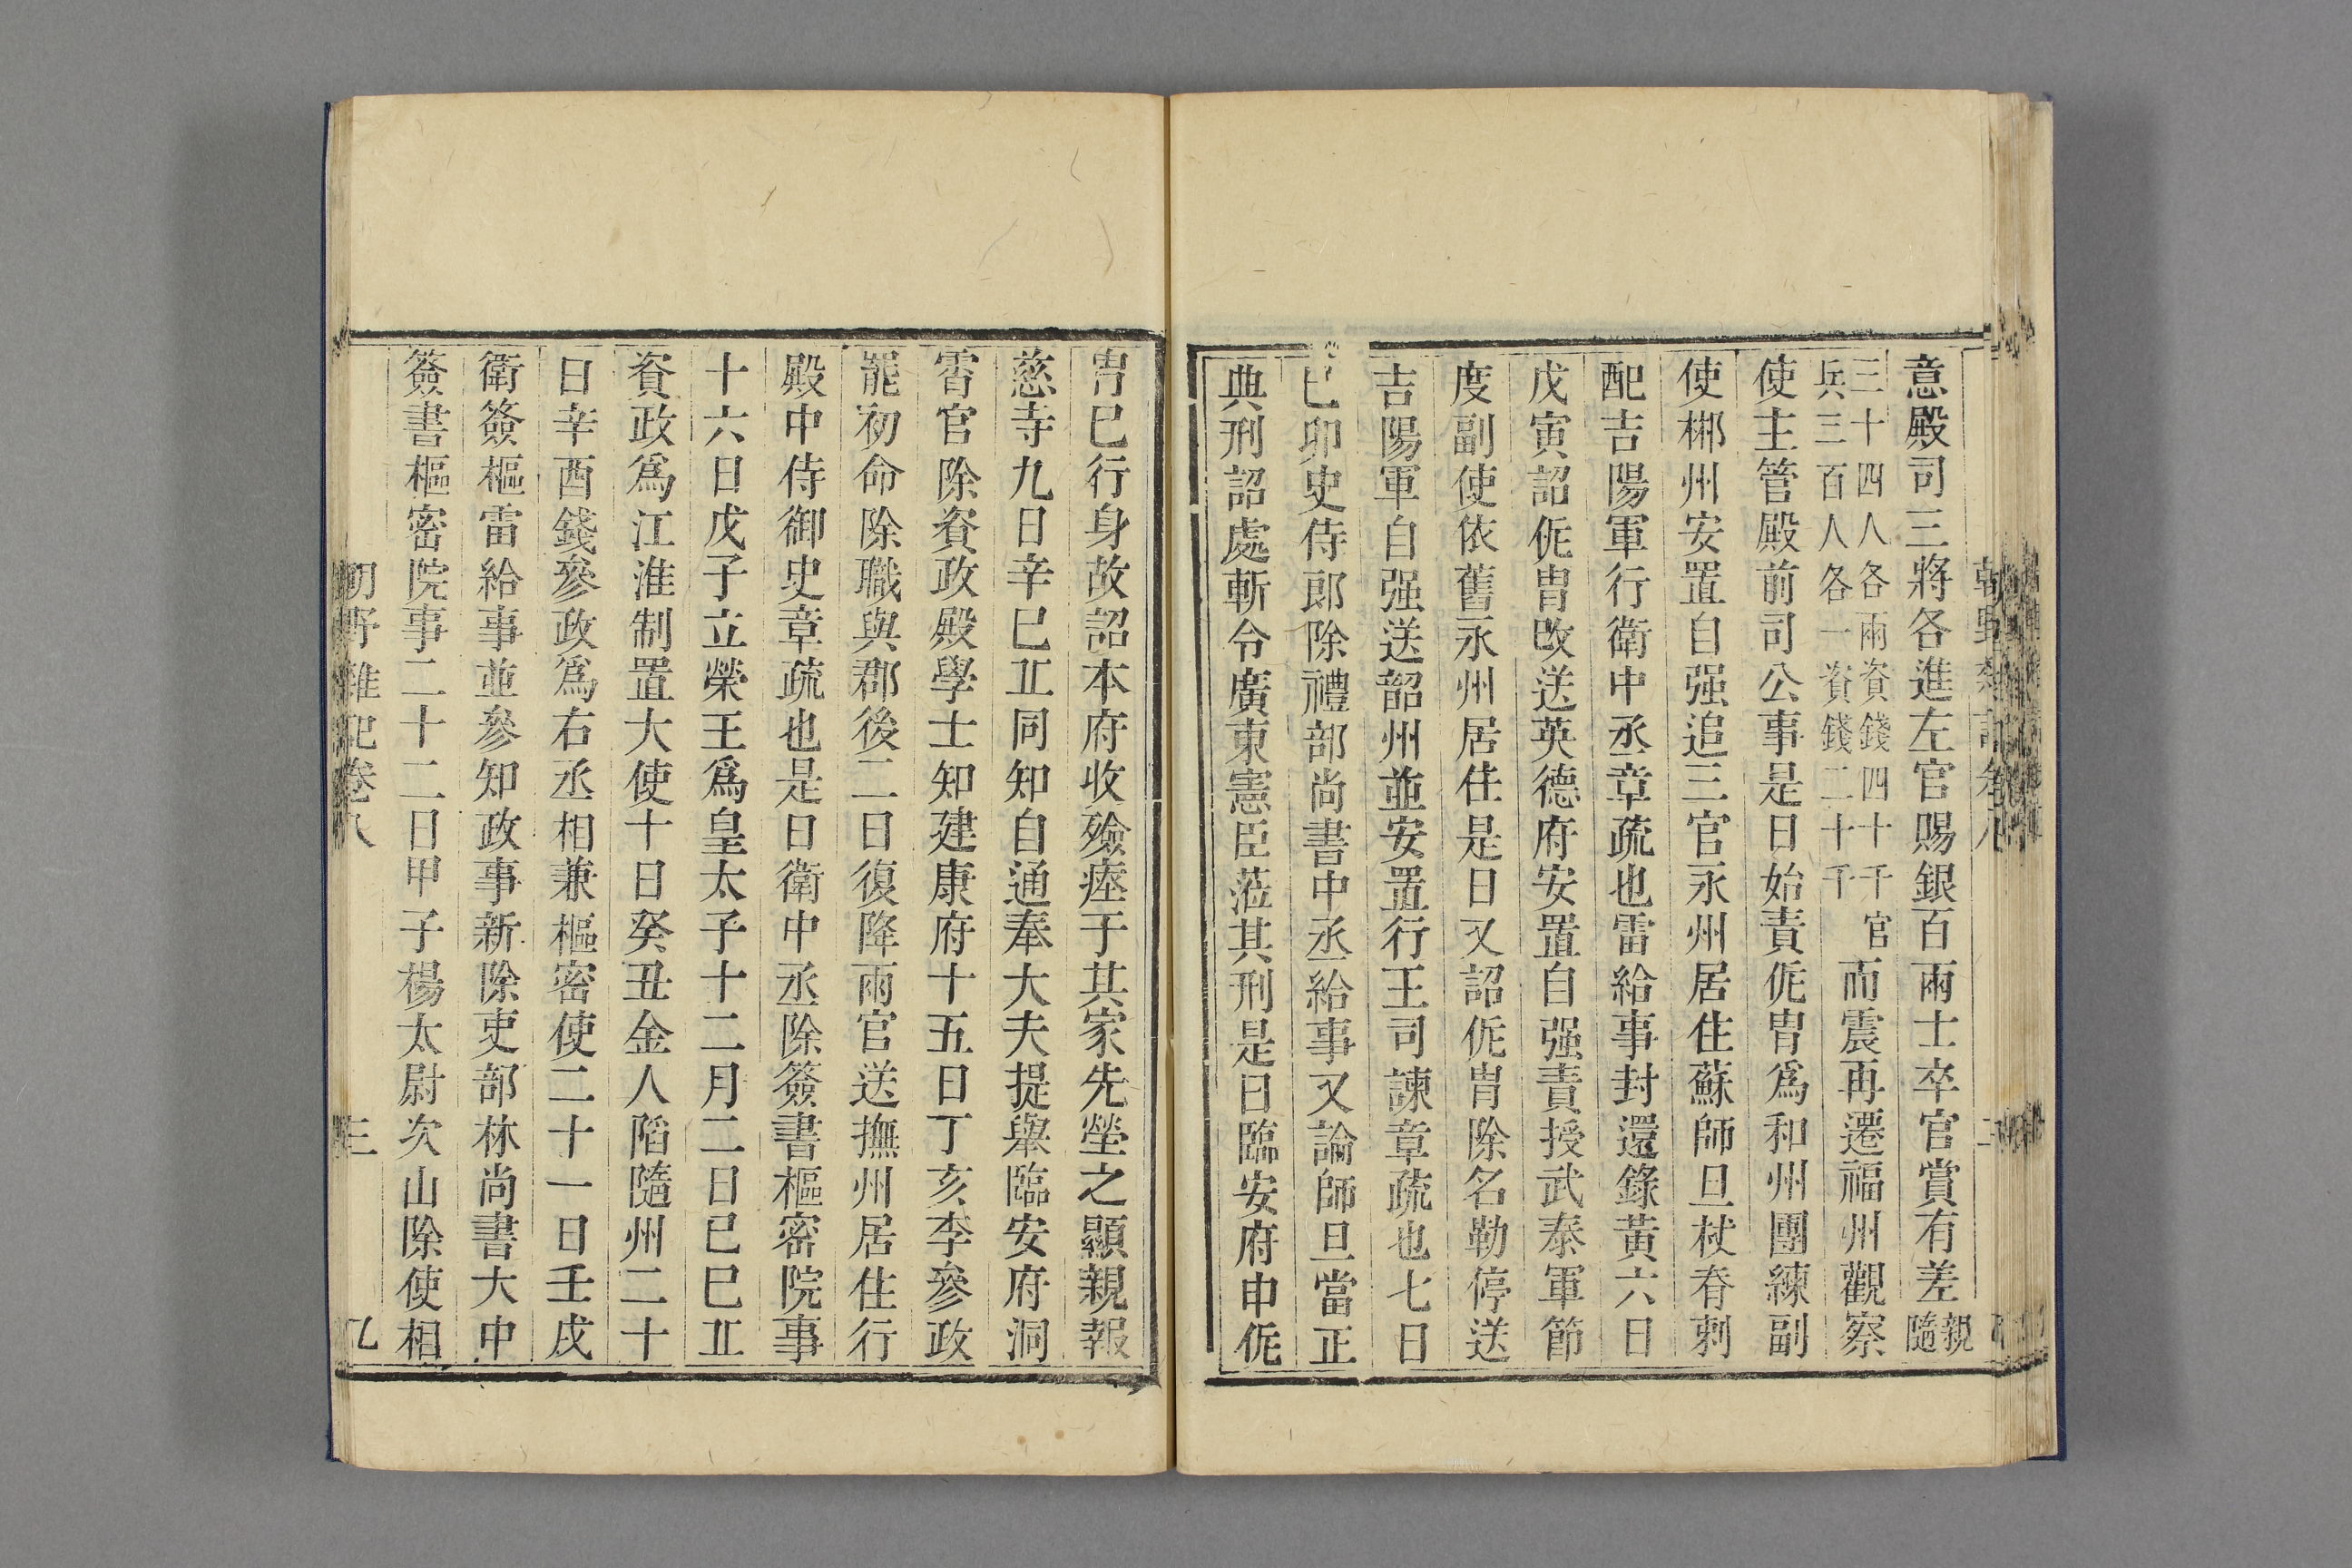 意殿司三將各進左官賜銀百兩士卒官賞有差親隨
三十四人各兩資錢四十千官兵三百人各一資錢二十千而震再遷福州觀察
使主管殿前司公事是日始責侂胄爲和州團練副
使郴州安置自强追三官永州居住蘇師旦杖脊刺
配吉陽軍行衛中丞章疏也雷給事封還錄黃六日
戊寅詔侂胄改送英德府安置自强責授武泰軍節
度副使依舊永州居住是日又詔侂胄除名勒停送
吉陽軍自强送韶州並安置行王司諫章疏也七日
己卯史侍郎除禮部尚書中丞給事又論師旦當正
典刑詔處斬令廣東憲臣蒞其刑是日臨安府申侂
胄已行身故詔本府收殮瘞于其家先塋之顯親報
慈寺九日辛巳丘同知自通奉大夫提舉臨安府洞
霄官除資政殿學士知建康府十五日丁亥李參政
罷初命除職與郡後二日復降兩官送撫州居住行
殿中侍御史章疏也是日衛中丞除簽書樞密院事
十六日戊子立榮王爲皇太子十二月二日己巳丘
資政爲江淮制置大使十日癸丑金人陷隨州二十
日辛酉錢參政爲右丞相兼樞密使二十一日壬戌
衛簽樞雷給事並參知政事新除吏部林尚書大中
簽書樞密院事二十二日甲子楊太尉次山除使相
朝野雜記卷八 三